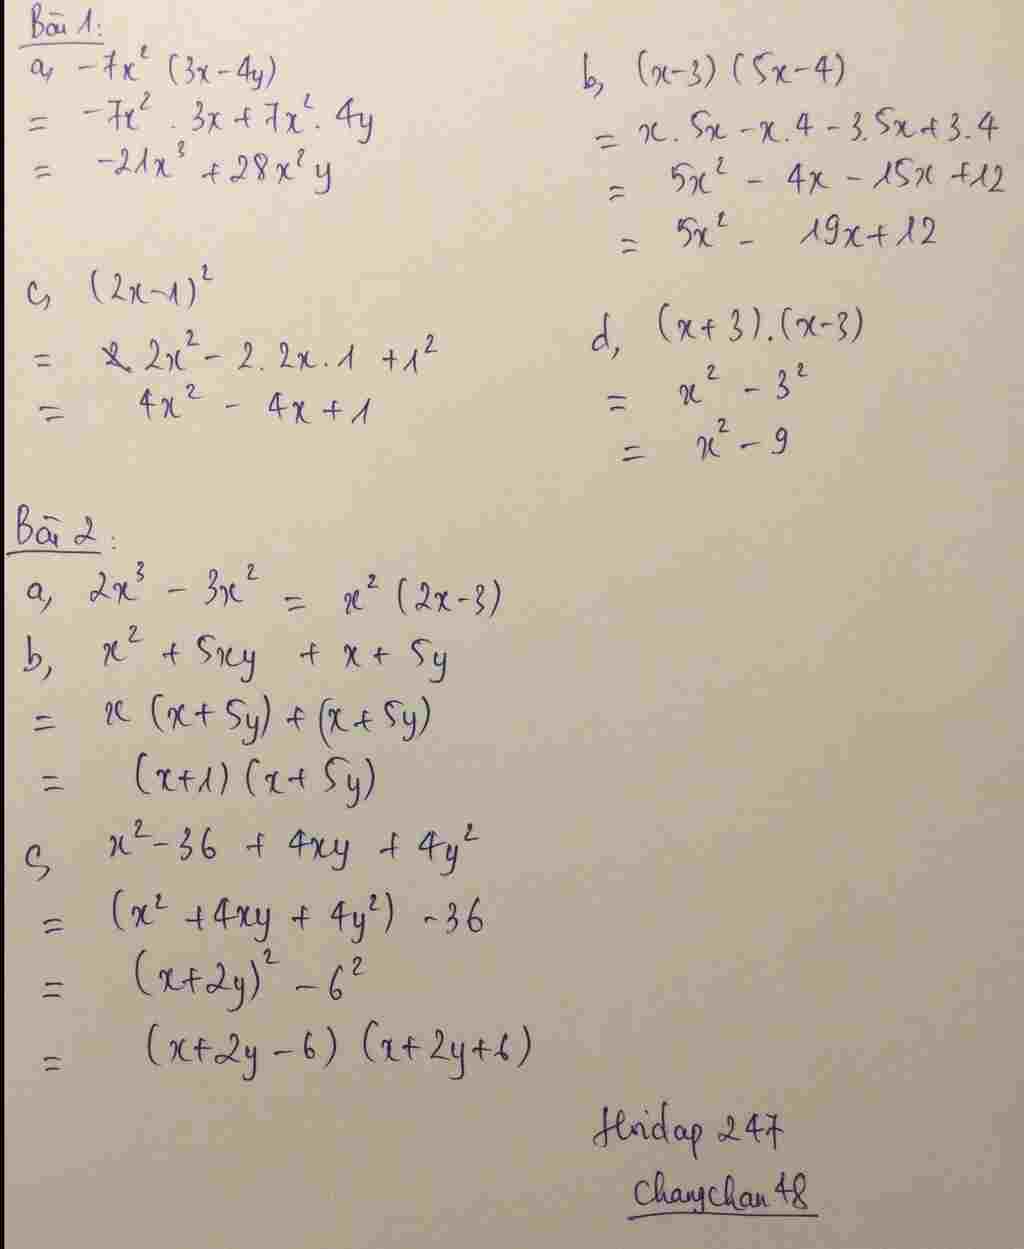 Bài 1:
a, -7x² (3x - 4y)
= -7x² . 3x + 7x² . 4y
= -21x³ + 28x²y
b, (x-3) (5x-4)
= x. 5x - x. 4 - 3. 5x + 3. 4
= 5x² - 4x - 15x + 12
= 5x² - 19x + 12
c, (2x-1)²
= 2x² - 2. 2x. 1 + 1²
= 4x² - 4x + 1
d, (x+3).(x-3)
= x² - 3²
= x² - 9
Bài 2:
a, 2x³ - 3x² = x² (2x-3)
b, x² + 5xy + x + 5y
= x (x+5y) + (x+5y)
= (x+1) (x+5y)
c, x² - 36 + 4xy + 4y²
= (x² + 4xy + 4y²) - 36
= (x+2y)² - 6²
= (x+2y-6) (x+2y+6)
Hoidap 247
Changchan 48